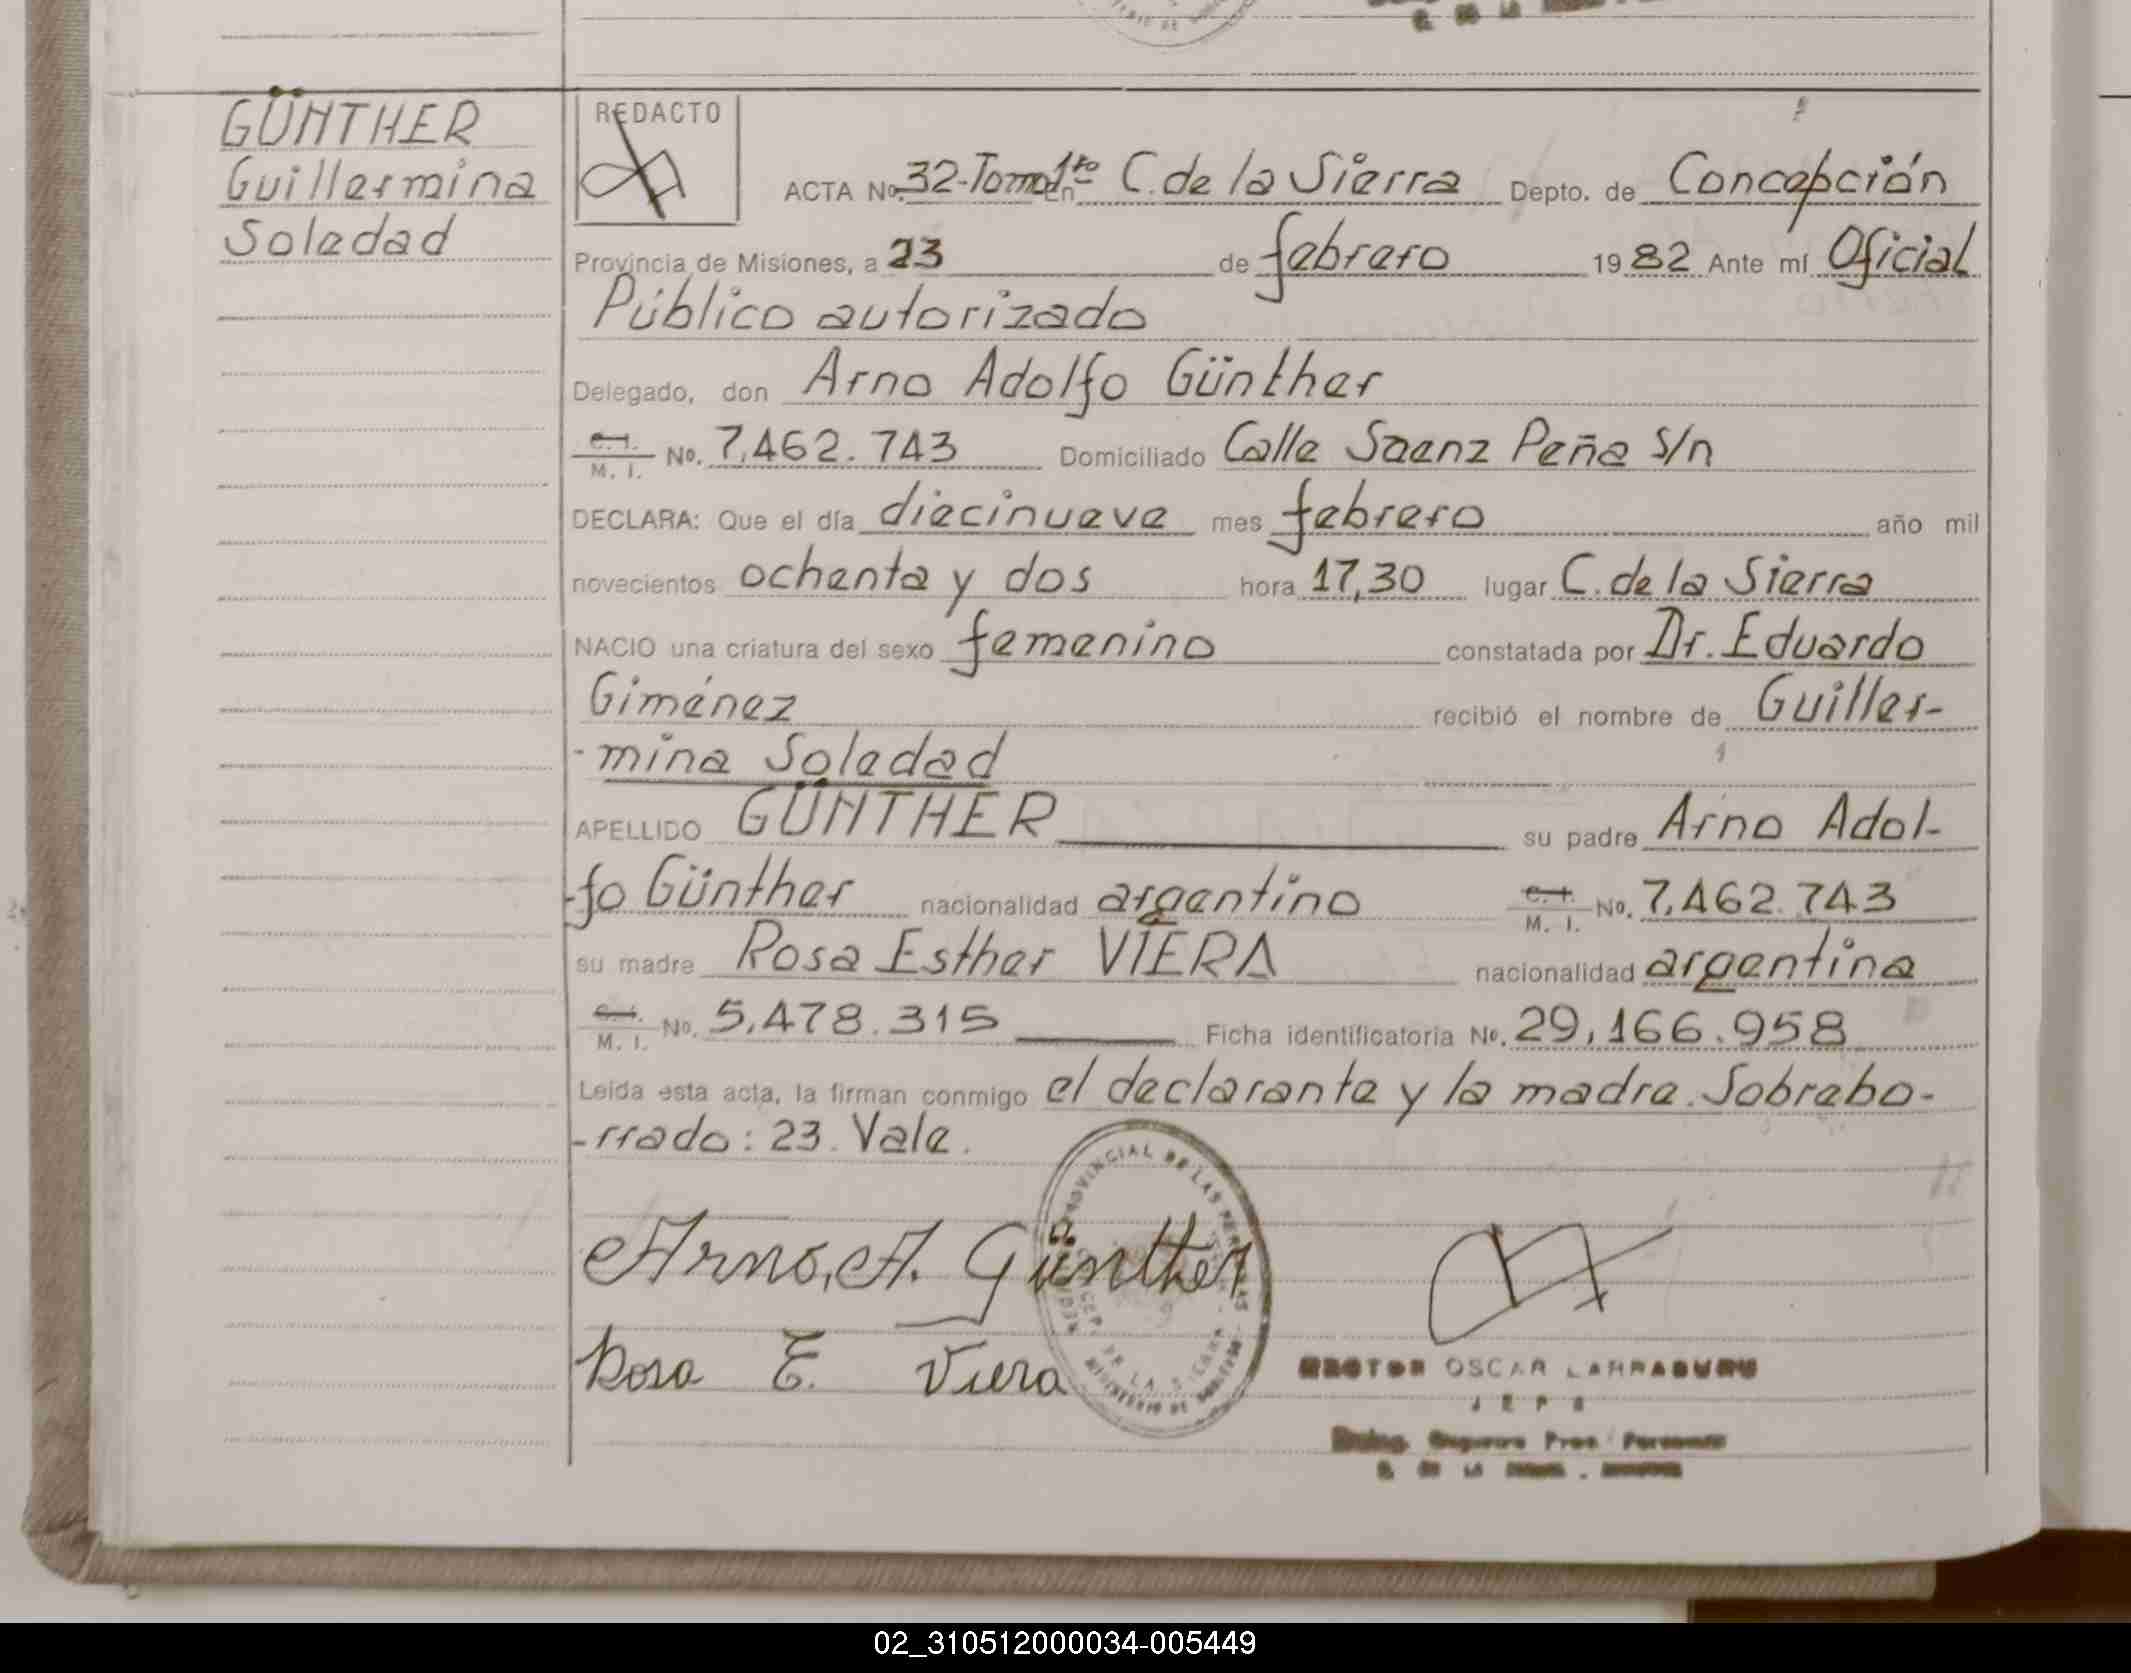 GÜNTHER
Guillermina
Soledad
REDACTO
ACTA No. 32-Tomo 1ro En C. de la Sierra Depto. de Concepción
Provincia de Misiones, a 23 de febrero 1982 Ante mí Oficial
Público autorizado
Delegado, don Arno Adolfo Günther
C.I. M. I. No. 7,462.743 Domiciliado Calle Saenz Peña s/n
DECLARA: Que el día diecinueve mes febrero año mil
novecientos ochenta y dos hora 17,30 lugar C. de la Sierra
NACIO una criatura del sexo femenino constatada por Dr. Eduardo
Giménez recibió el nombre de Guiller-
-mina Soledad
APELLIDO GÜNTHER su padre Arno Adol-
-fo Günther nacionalidad argentino C.I. M. I. No. 7,462.743
su madre Rosa Esther VIERA nacionalidad argentina
C.I. M. I. No. 5,478.315 Ficha identificatoria No. 29,166.958
Leida esta acta, la firman conmigo el declarante y la madre. Sobrebo-
-rrado: 23. Vale.
Arno, A. Günther
Rosa E. Viera
PROVINCIAL DE LAS PERSONAS
HECTOR OSCAR LARRABURU
02_310512000034-005449